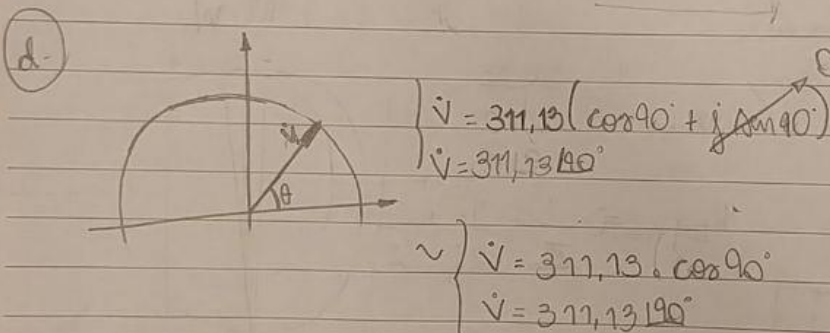 d-
V̇
θ
V̇ = 311,13(cos90° + j sen90°) 0
V̇ = 311,13∠90°
~ V̇ = 311,13 . cos90°
V̇ = 311,13∠90°